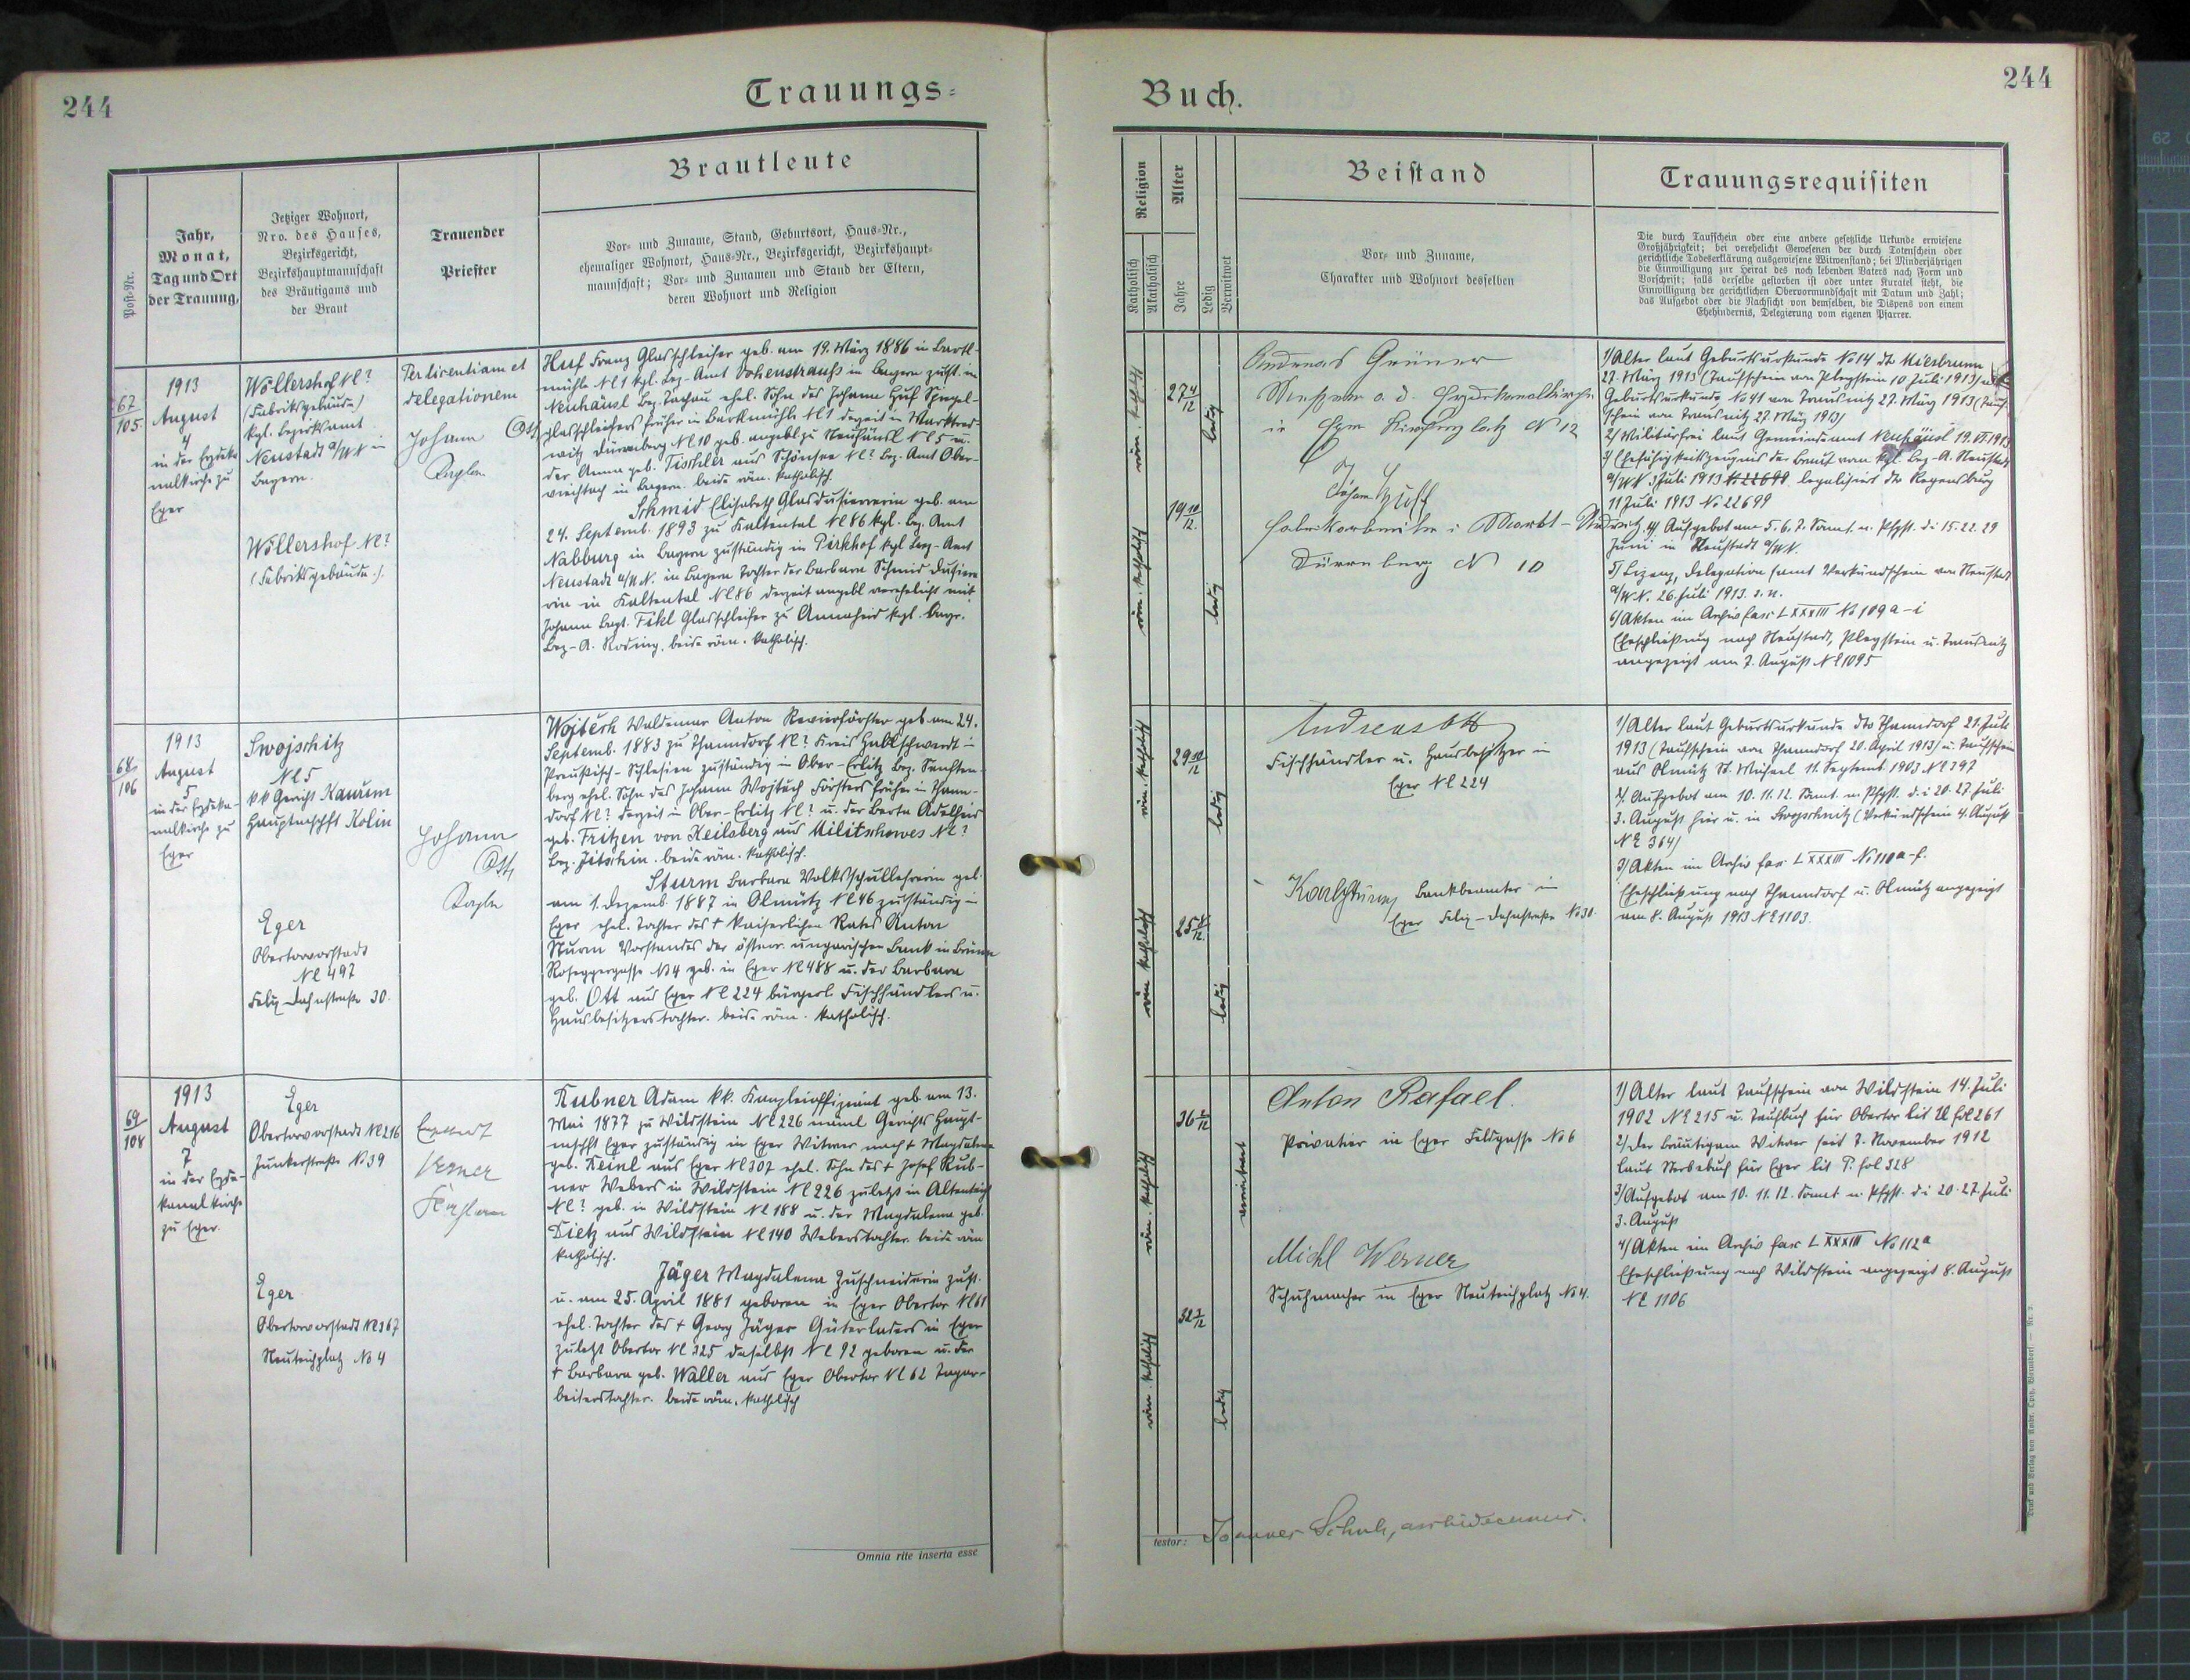 244
Trauungs-
Post-Nr.
Jahr,
Monat,
Tag und Ort
der Trauung,
Jetziger Wohnort,
Nro. des Hauses,
Bezirksgericht,
Bezirkshauptmannschaft
des Bräutigams und
der Braut
Trauender
Priester
Brautleute
Vor- und Zuname, Stand, Geburtsort, Haus-Nr.,
ehemaliger Wohnort, Haus-Nr., Bezirksgericht, Bezirkshaupt-
mannschaft; Vor- und Zunamen und Stand der Eltern,
deren Wohnort und Religion
67
105.
1913
August
4
in der Erzdeka
nalkirche zu
Eger
Wöllershof Nc?
(Fabriksgebäude)
kgl. Bezirksamt
Neustadt a/WN in
Bayern.
Wöllershof Nc?
(Fabriksgebäude.).
Per licentiam et
delegationem
Johann Ott
Kaplan
Huf Franz Glasschleifer geb. am 19. März 1886 in Bartl-
mühle Nc 1 kgl. Bez.-Amt Vohenstrauß in Bayern zust. in
Neuhäusl Bez. Tachau ehel. Sohn des Johann Huf Spiegel-
glasschleifers früher in Bartlmühle Nc 1 derzeit in Marktred-
witz Dürrnberg Nc 10 geb. angebl. zu Neuhäusl Nc 5 u.
der Anna geb. Tischler aus Schönsee Nc? Bez. Amt Ober-
viechtach in Bayern. beide röm. katholisch.
Schmid Elisabeth Glasdusiererin geb. am
24. Septemb. 1893 zu Kaltental Nc 86 kgl. Bez. Amt
Nabburg in Bayern zuständig in Pirkhof kgl Bez-Amt
Neustadt a/W.N. in Bayern Tochter der Barbara Schmid Dusiere
rin in Kaltental Nc 86 derzeit angebl verehelicht mit
Johann Bapt. Fikl Glasschleifer zu kgl. bayr.
Bez-A. Roding, beide röm. katholisch.
68
106
1913
August
5
in der Erzdeka-
nalkirche zu
Eger
Swojschitz
Nc 5
kk Gericht Kaurim
Hauptmschft Kolin
Eger
Obertorvorstadt
Nc 497
Felix Dahnstraße 30.
Johann
Ott,
Kaplan
Wojtěch Waldemar Anton Revierförster geb. am 24.
Septemb. 1883 zu Thanndorf Nc? Kreis Habelschwerdt in
Preußisch-Schlesien zuständig in Ober-Erlitz Bez. Senften-
berg ehel. Sohn des Johann Wojtěch Försters früher in Thann-
dorf Nc? derzeit in Ober-Erlitz Nc? u. der Berta Adelheid
geb. Fritzen von Heilsberg aus Militschowes Nc?
Bez. Jitschin. beide röm. katholisch.
Sturm Barbara Volksschullehrerin geb.
am 1. Dezemb. 1887 in Olmütz Nc 46 zuständig in
Eger ehel. Tochter des † kaiserlichen Rates Anton
Sturm Vorstandes der österr. ungarischen Bank in Brünn
Roseggergasse No 4 geb. in Eger Nc 488 u. der Barbara
geb. Ott aus Eger Nc 224 bürgerl. Fischhändlers u.
Hausbesitzerstochter. beide röm. katholisch.
69
108
1913
August
7
in der Erzde-
kanalkirche
zu Eger.
Eger
Obertorvorstadt Nc 216
Junkerstraße No 39
Eger
Obertorvorstadt Nc 367
Neuteichplatz No 4
Kaplan
Kubner Adam kk. Kanzleioffiziant geb am 13.
Mai 1877 zu Wildstein Nc 226 näml Gerichts Haupt-
mschft Eger zuständig in Eger Witwer nach † Magdalena
geb. Keinl aus Eger Nc 307 ehel. Sohn des † Josef Kub-
ner Webers in Wildstein Nc 226 zuletzt in Altenteich
Nc? geb. in Wildstein Nc 188 u. der Magdalena geb.
Dietz aus Wildstein Nc 140 Weberstochter. beide röm
katholisch.
Jäger Magdalena Zuschneiderin zust.
u. am 25. April 1881 geboren in Eger Obertor Nc 61
ehel. Tochter des † Georg Jäger Güterladers in Eger
zuletzt Obertor Nc 325 daselbst Nc 92 geboren u. der
† Barbara geb. Waller aus Eger Obertor Nc 62 Tagar-
beiterstochter. beide röm. katholisch
Omnia rite inserta esse
Buch.
244
Religion
Katholisch
Akatholisch
Alter
Jahre
Ledig
Verwitwet
Beistand
Vor- und Zuname,
Charakter und Wohnort desselben
Trauungsrequisiten
Die durch Taufschein oder eine andere gesetzliche Urkunde erwiesene
Großjährigkeit; bei verehelicht Gewesenen der durch Totenschein oder
gerichtliche Todeserklärung ausgewiesene Witwenstand; bei Minderjährigen
die Einwilligung zur Heirat des noch lebenden Vaters nach Form und
Vorschrift; falls derselbe gestorben ist oder unter Kuratel steht, die
Einwilligung der gerichtlichen Obervormundschaft mit Datum und Zahl;
das Aufgebot oder die Nachsicht von demselben, die Dispens von einem
Ehehindernis, Delegierung vom eigenen Pfarrer.
röm. katholisch
27 4/12
ledig
röm. katholisch
19 10/12
ledig
Andreas Grüner
Messner a. d. Erzdekanalkirche
in Eger Kirchenplatz N 12
Johann Huff
Fabrikarbeiter in Markt-Redwitz
Dürrnberg N 10
1) Alter laut Geburtsurkunde No 14 dto Miesbrunn
27. März 1913 (Taufschein von Pleystein 10 Juli 1913) u.
Geburtsurkunde No 41 von Trausnitz 27. März 1913 (Tauf-
schein von Trausnitz 27. März 1913)
2) Militärfrei laut Gemeindeamt Neuhäusl 19. VI. 1913
3) Ehefähigkeitszeugnis der Braut vom kgl. Bez-A. Neustadt
a/WN 3 Juli 1913 N. 22699 legalisiert dto Regensburg
11 Juli 1913 No 22699
4) Aufgebot am 5. 6. 7. Sonnt. n. Pfgst. d. i. 15. 22. 29
Juni in Neustadt a/WN.
5) Lizenz, Delegation samt Verkündschein von Neustadt
a/WN. 26. Juli 1913. s. n.
6) Akten im Archiv fasc LXXXIII No 109 a-i
Eheschließung nach Neustadt, Pleystein u. Trausnitz
angezeigt am 7. August Nc 1095
röm. katholisch
29 10/12
ledig
röm katholisch
25 8/12
ledig
Andreas Ott
Fischhändler u. Hausbesitzer in
Eger Nc 224
Karl Sturm, Bankbeamter in
Eger Felix-Dahnstraße No 30.
1) Alter laut Geburtsurkunde dto Thanndorf 21. Juli
1913 (Taufschein von Thanndorf 20. April 1913) u. Taufschein
aus Olmütz St. Michael 11. Septemb. 1903 Nc 397
2). Aufgebot am 10. 11. 12. Sonnt. n. Pfgst. d. i 20. 27. Juli
3. August hier u. in Swojschitz (Verkündschein 4. August
Nc 364)
3) Akten im Archiv fasc LXXXIII No 110 a-f.
Eheschließung nach Thanndorf u. Olmütz angezeigt
am 8. August 1913 Nc 1103.
röm. katholisch
36 2/12
verwitwet
röm. katholisch
32 3/12
ledig
Anton Rafael.
Privatier in Eger Feldgasse No 6
Michl Werner
Schuhmacher in Eger Neuteichplatz No 4.
1) Alter laut Taufschein von Wildstein 14. Juli
1902 Nc 215 u. Taufbuch für Obertor lit U fol 261
2) Der Bräutigam Witwer seit 7. November 1912
laut Sterbebuch für Eger lit P. fol 328
3) Aufgebot am 10. 11. 12. Sonnt n. Pfgst. d i 20. 27. Juli
3. August
4) Akten im Archiv fasc LXXXIII No 112 a
Eheschließung nach Wildstein angezeigt 8. August
Nc 1106
testor: Joannes Schuh, archidecanus.